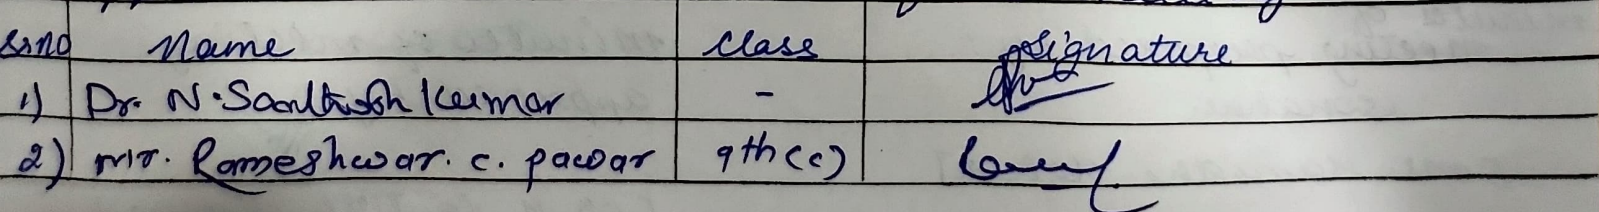 Sr.no Name Class Signature
1) Dr. N. Santhosh Kumar -
2) Mr. Rameshwar. C. Pawar 9th (c)